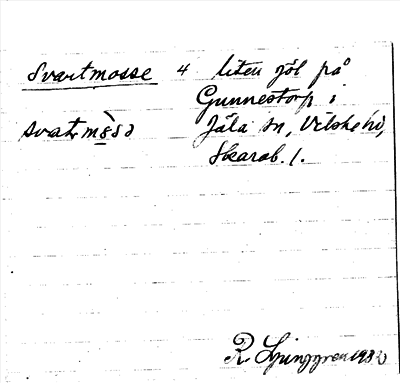 Svartmosse 4 liten göl på
Gunnestorp i
svatmåsɔ Jäla sn, Vilske hd,
Skarab. l.
R. Ljunggren 1930